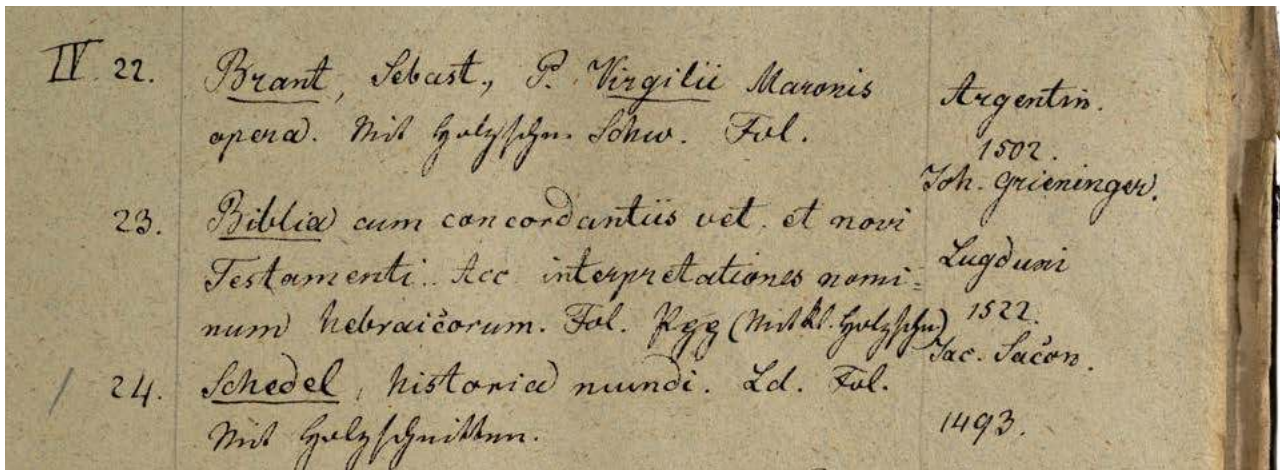 IV. 22. Brant, Sebast., P. Virgilii Maronis
opera. Mit Holzschn. Schw. Fol.
Argentin.
1502.
Joh. Grieninger.
23. Biblia cum concordantiis vet. et novi
Testamenti. Acc. interpretationes nomi=
num hebraicorum. Fol. Pgg (Mit kl. Holzschn.)
Lugduni
1522.
Jac. Sacon.
24. Schedel, historia mundi. Ld. Fol.
Mit Holzschnitten.
1493.